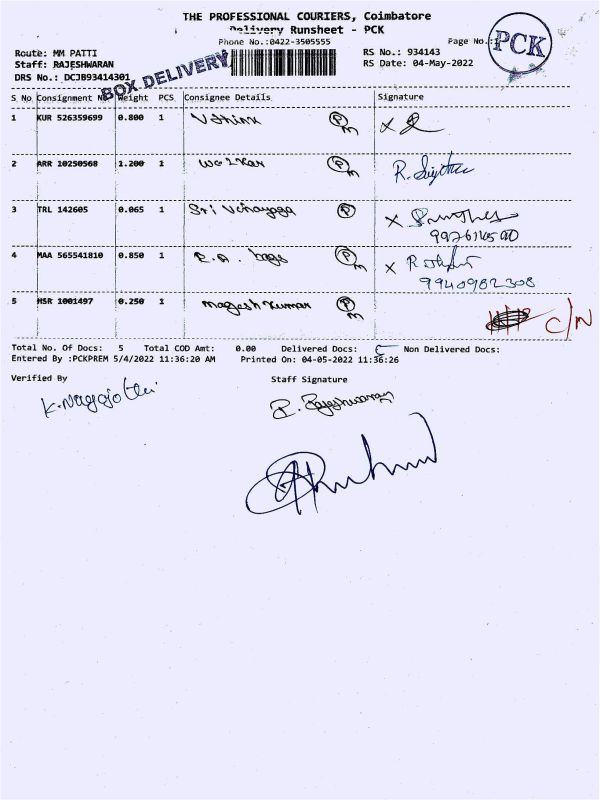 THE PROFESSIONAL COURIERS, Coimbatore
Delivery Runsheet - PCK
Phone No.:0422-3505555
Page No.:1
PCK
Route: MM PATTI
RS No.: 934143
Staff: RAJESHWARAN
RS Date: 04-May-2022
DRS No.: DCJB93414301
BOX DELIVERY
S No Consignment No Weight PCS Consignee Details Signature
1 KUR 526359699 0.800 1 P M X
2 ARR 10250568 1.200 1 P M R.
3 TRL 142605 0.065 1 Sri Vinayaga P X
4 MAA 565541810 0.850 1 R.A. bags P M X
9940982308
5 HSR 1001497 0.250 1 Magesh Kumar P M C/N
Total No. Of Docs: 5 Total COD Amt: 0.00 Delivered Docs: 5 Non Delivered Docs:
Entered By :PCKPREM 5/4/2022 11:36:20 AM Printed On: 04-05-2022 11:36:26
Verified By Staff Signature
K. Nagajothi P. Rajeshwaran